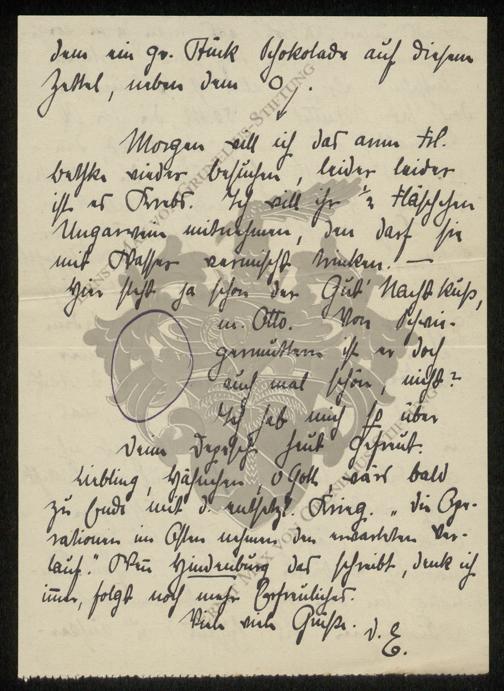 dem ein gr. Stück Schokolade auf diesem
Zettel, neben dem O.
Morgen will ich das arme Frl.
Bethke wieder besuchen, leider leider
ist es Krebs. Ich will ihr ½ Fläschchen
Ungarwein mitnehmen, den darf sie
mit Wasser vermischt trinken. —
Hier steht ja schon der Gut' Nacht Kuß,
m. Otto. Von Schwie-
germuttern ist er doch
auch mal schön, nicht?
Ich hab mich so über
Deine Depesche heut gefreut.
Liebling, Häschen, o Gott, wärs bald
zu Ende mit d. entsetzl. Krieg. „Die Ope-
rationen im Osten nehmen den erwarteten Ver-
lauf." Wenn Hindenburg das schreibt, denk ich
immer, folgt noch mehr Erfreuliches.
Viele viele Grüße. d. E.
ERNST MAX VON GRUNELIUS-STIFTUNG
ERNST MAX VON GRUNELIUS-STIFTUNG